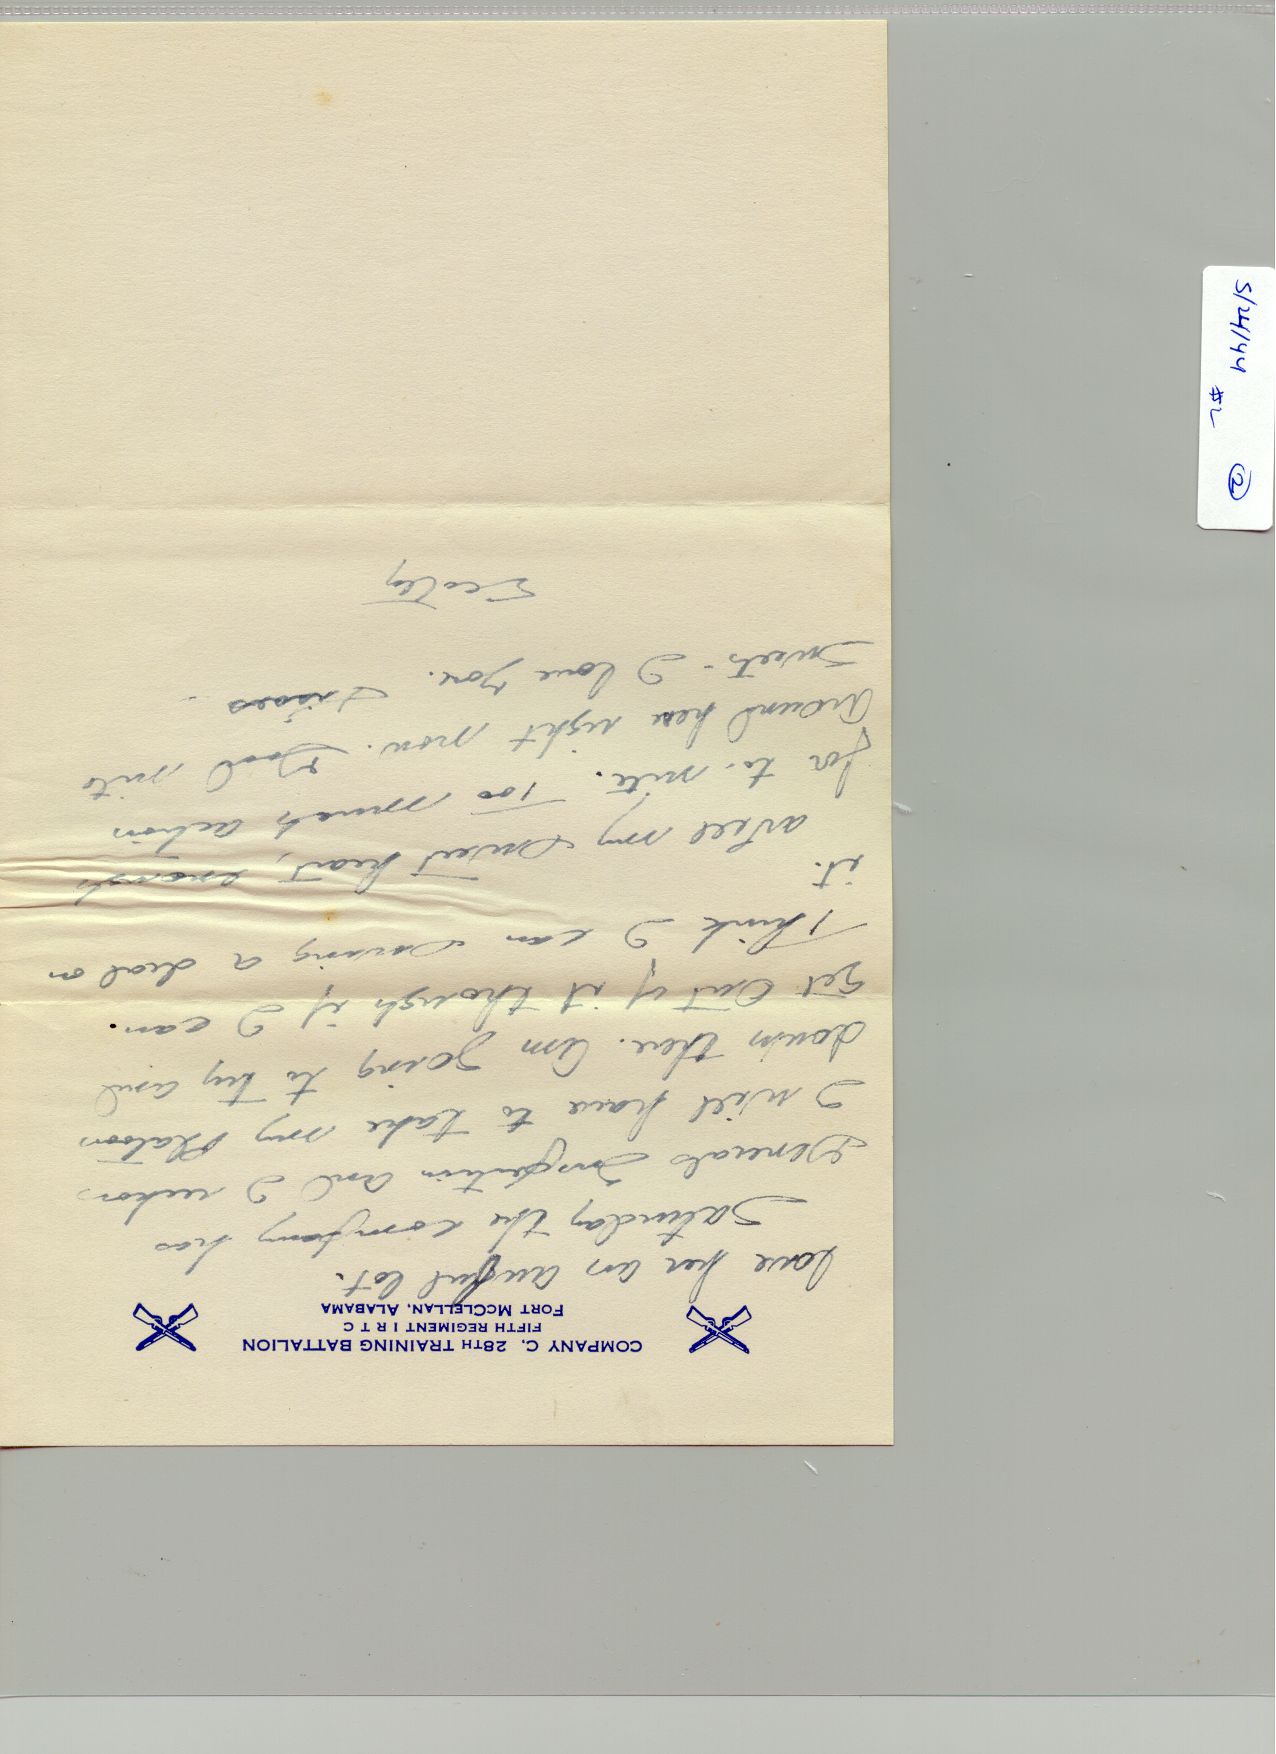 COMPANY C, 28TH TRAINING BATTALION
FIFTH REGIMENT I R T C
FORT MCCLELLAN, ALABAMA
love her an awful lot.
Saturday the company has
Generals Inspection and I reckon
I will have to take my Platoon
down there. Am going to try and
get out of it though if I can.
I think I can swing a deal on
it.
Well my Sweet heart, enough
for to-nite. Too much action
around here right now. Good nite
Sweets - I love you. Kisses.
Scotty
5/24/44
#2
2